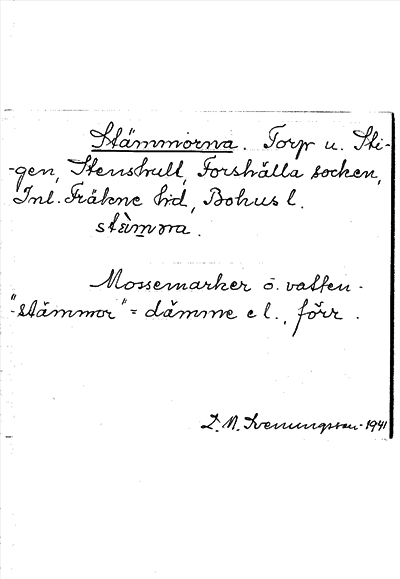 Stämmorna. Torp u. Sti-
-gen, Stenshult, Forshälla socken,
Inl. Fräkne hd, Bohus l.
stä̀m̲ɷra.
Mossemarker o. vatten-
-"stämmor" = dämme e l., förr.
L. M. Svenungsson-1941